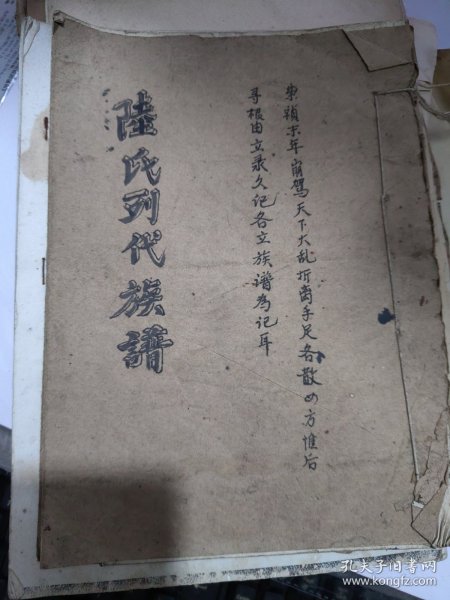 東禎末年崩駕天下大乱折离手足各散四方惟后
寻根由立录久记各立族谱為记耳
陸氏列代族譜
孔夫子旧书网
www.kongfz.com